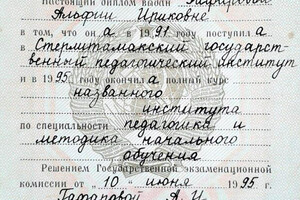 Настоящий диплом выдан
Альфие Ириковне
в том, что она в 1991 году поступила в
Стерлитамакский государст-
венный педагогический институт
и в 1995 году окончила полный курс
названного
института
по специальности педагогика и
методика начального
обучения
Решением Государственной экзаменационной
комиссии от "10" июня 1995 г.
Гафаровой А.И.